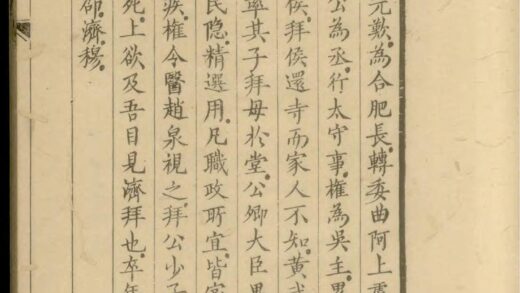 元歎。為合肥長。轉委曲阿上虞
公為丞。行太守事。權為吳主。累
侯。拜侯還寺而家人不知。黃武
率其子拜母於堂。公卿大臣畢
民隱。精選用。凡職政所宜。皆密
疾。權令醫趙泉視之。拜公少子
死。上欲及吾目見濟拜也。卒年
卲。濟。穆。